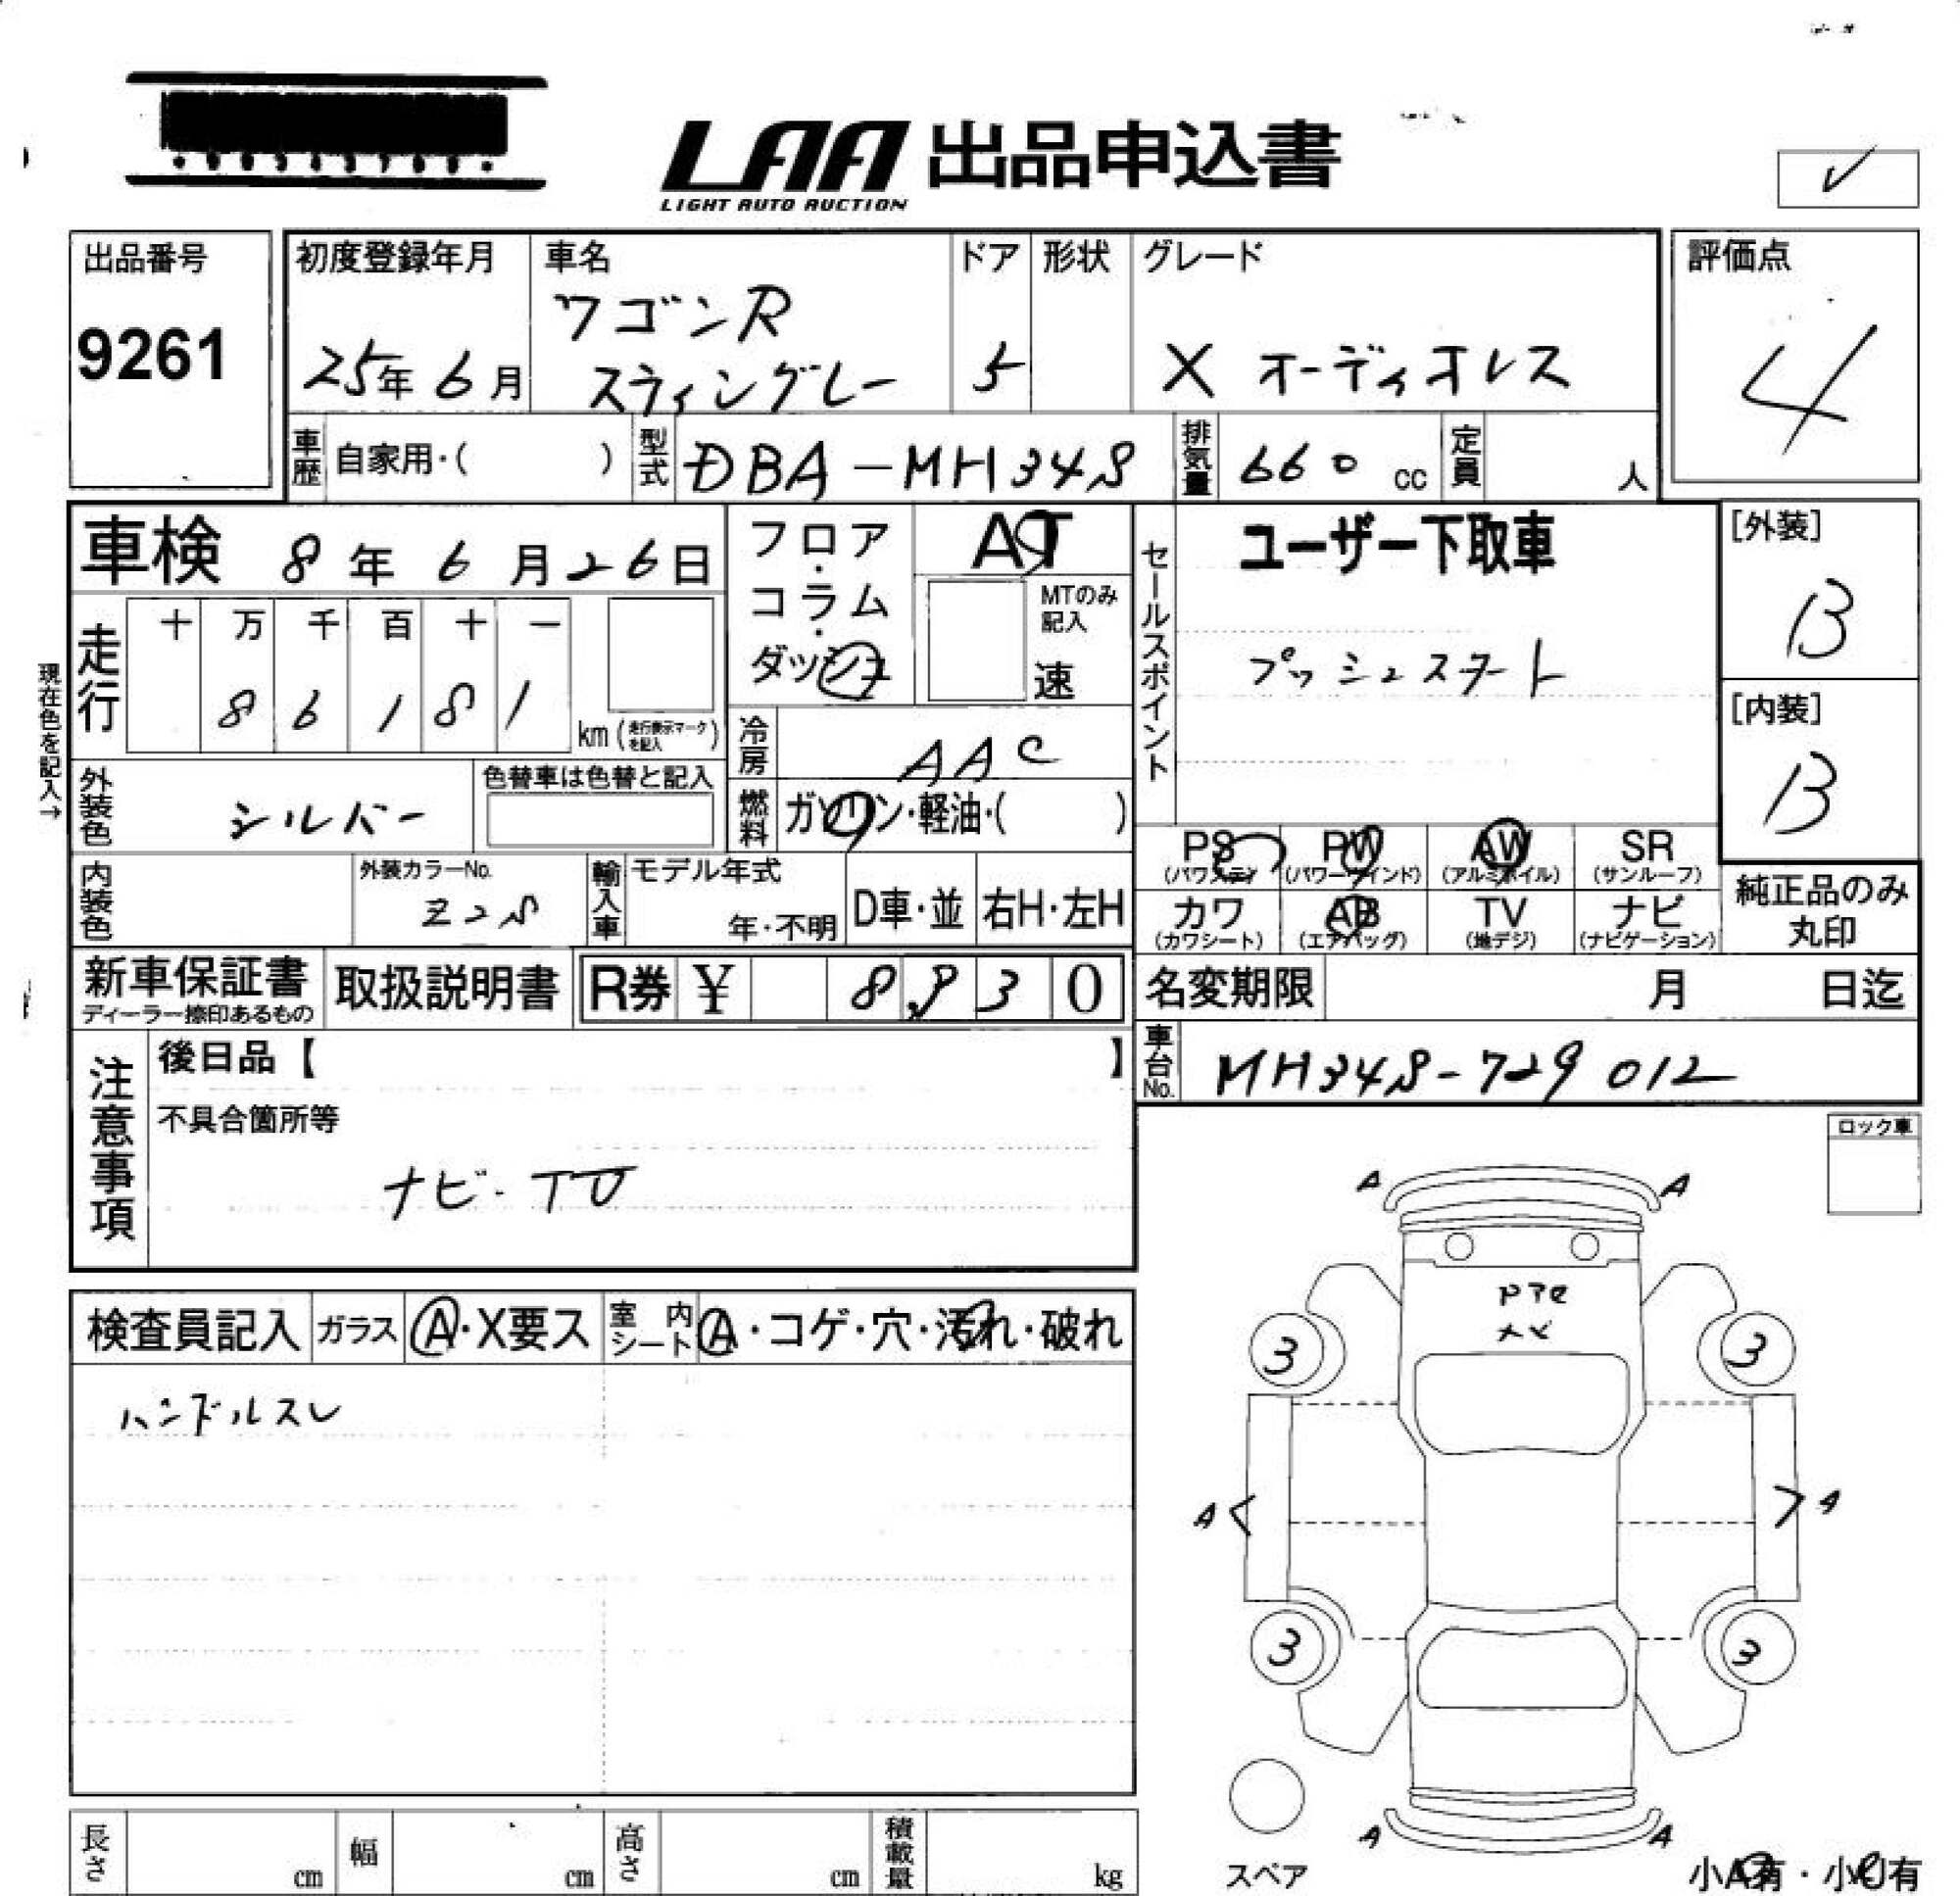 LAA 出品申込書
LIGHT AUTO AUCTION
✓
出品番号
9261
初度登録年月
25年 6月
車名
ワゴンR
スティングレー
ドア
5
形状
グレード
X オーディオレス
評価点
4
車歴 自家用・( )
型式 DBA-MH34S
排気量 660 cc
定員 人
車検 8年 6月 26日
現在色を記入→
走行 十 万 千 百 十 一
8 6 1 8 1
km (走行表示マークを記入)
フロア・コラム・ダッシュ
AT
MTのみ記入
速
冷房 AAC
燃料 ガソリン・軽油・( )
外装色 シルバー
色替車は色替と記入
内装色
外装カラーNo.
Z2S
輸入車
モデル年式
年・不明
D車・並
右H・左H
セールスポイント
ユーザー下取車
プッシュスタート
[外装]
B
[内装]
B
PS (パワステ)
PW (パワーウィンド)
AW (アルミホイル)
SR (サンルーフ)
カワ (カワシート)
AB (エアバッグ)
TV (地デジ)
ナビ (ナビゲーション)
純正品のみ丸印
新車保証書
ディーラー捺印あるもの
取扱説明書
R券 ¥ 8,930
名変期限 月 日迄
車台No. MH34S-729012
注意事項
後日品【 】
不具合箇所等
ナビ・TV
ロック車
検査員記入
ガラス A・X要ス
室内シート A・コゲ・穴・汚れ・破れ
ハンドルスレ
A A
3 3
A A
3 3
A A
スペア
小A有・小U有
長さ cm
幅 cm
高さ cm
積載量 kg